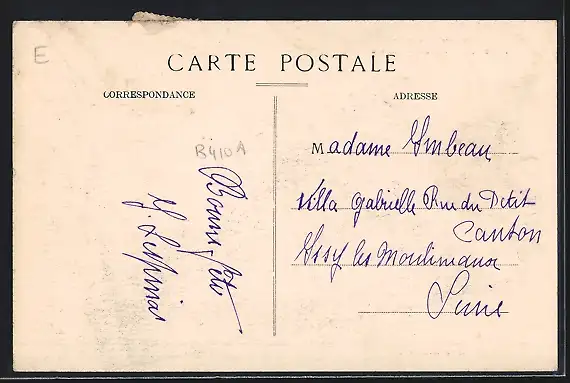 E
CARTE POSTALE
CORRESPONDANCE
ADRESSE
B410A
Bonne fête
Madame Imbeau
Villa Gabrielle Rue du Petit
Canton
Issy les Moulineaux
Seine